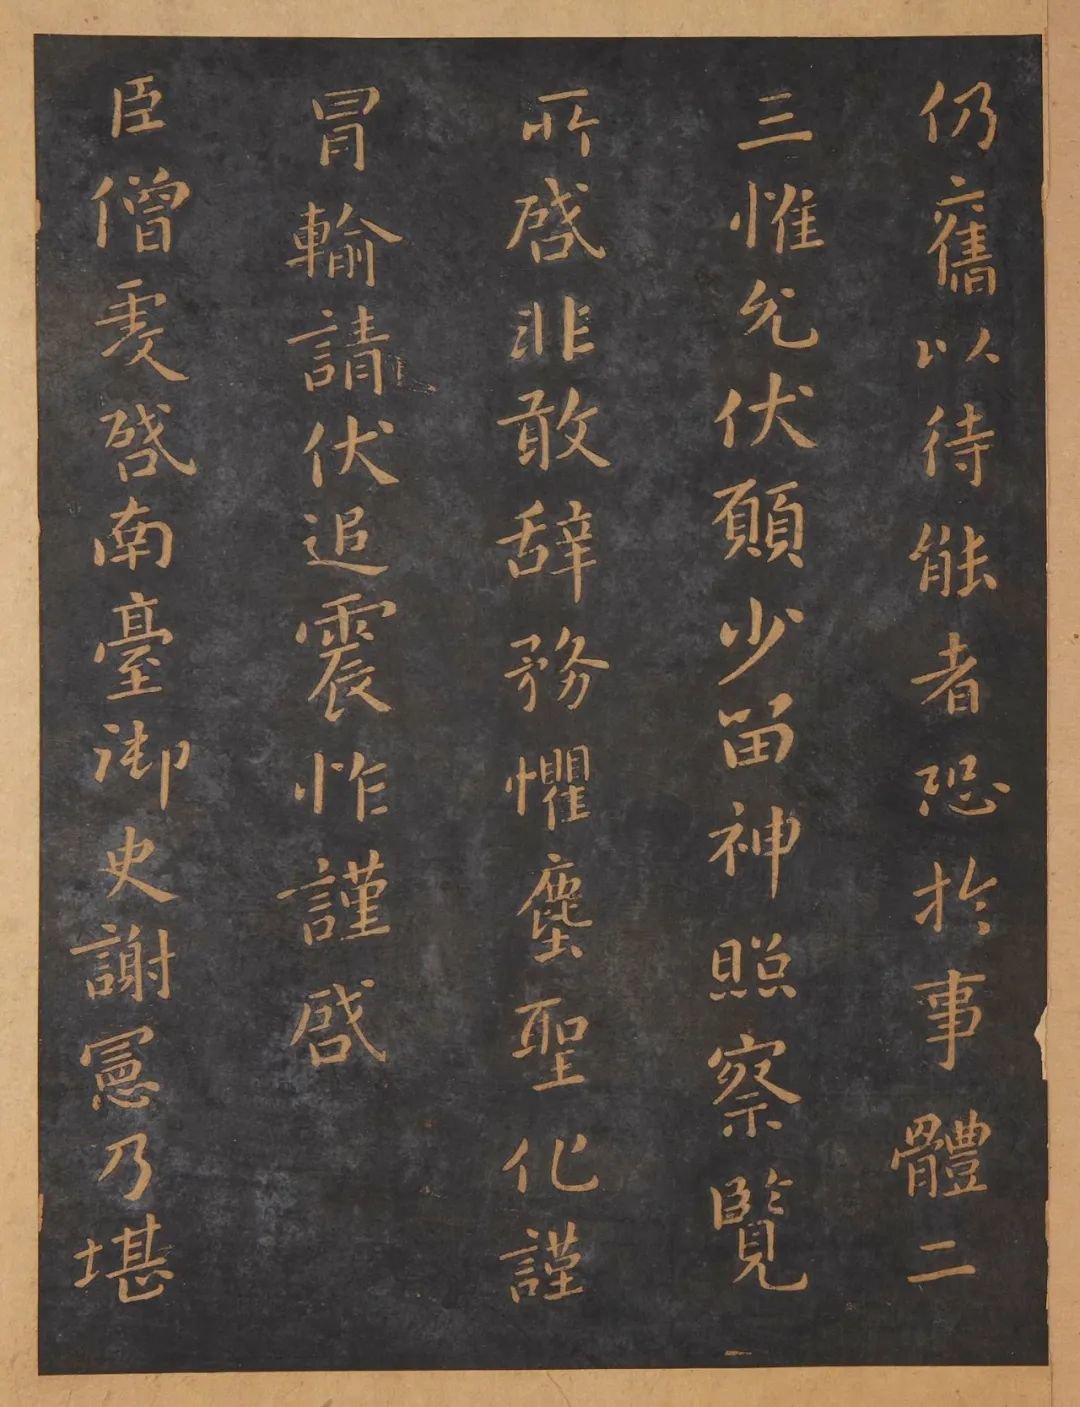 仍舊以待能者恐於事體二
三惟允伏願少留神照察覽
所啓非敢辭務懼塵聖化謹
冒輸請伏追震怍謹啓
臣僧虔啓南臺御史謝憲乃堪